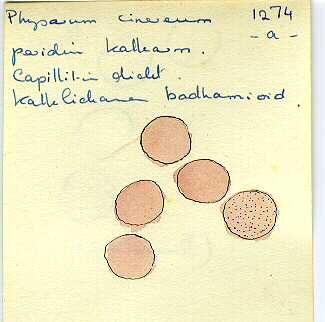 Physarum cinereum 1274
peridia kalkarm. - a -
Capillitia dicht.
Kalklichamen badhamioid.